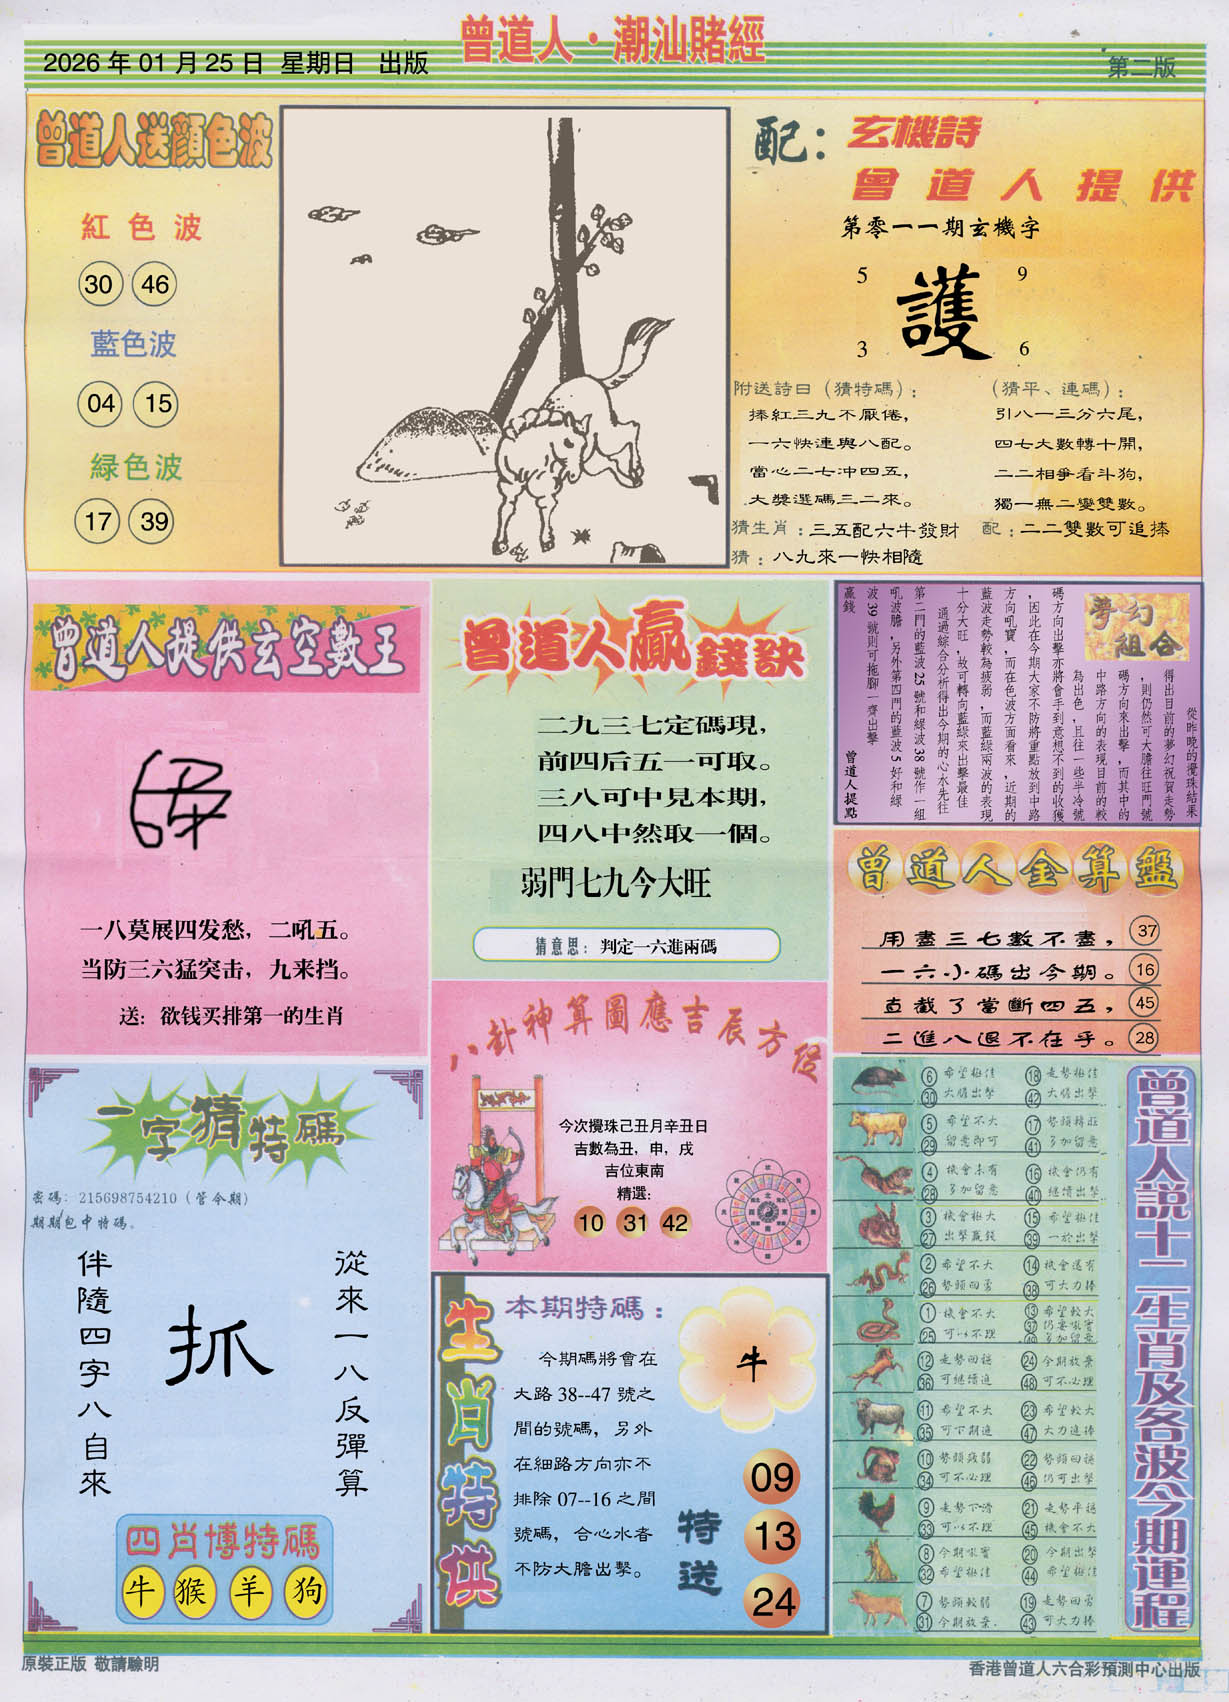 曾道人·潮汕賭經
2026 年 01 月 25 日 星期日 出版
第二版
曾道人送顏色波
紅色波
30 46
藍色波
04 15
緑色波
17 39
配：
玄機詩
曾道人提供
第零一一期玄機字
5 9
護
3 6
附送詩曰（猜特碼）：
捧紅三九不厭倦，
一六快連與八配。
當心二七冲四五，
大獎選碼三二來。
（猜平、連碼）：
引八一三分六尾，
四七大數轉十開，
二二相爭看斗狗，
獨一無二變雙數。
猜生肖：三五配六牛發財
配：二二雙數可追捧
猜：八九來一快相隨
曾道人提供玄空數王
一八莫展四发愁，二吼五。
当防三六猛突击，九来挡。
送：欲钱买排第一的生肖
曾道人贏錢訣
二九三七定碼現，
前四后五一可取。
三八可中見本期，
四八中然取一個。
弱門七九今大旺
猜意思：判定一六進兩碼
夢幻
組合
從昨晚的攪珠結果
得出目前的夢幻祝賀走勢
，則仍然可大膽往旺門號
碼方向來出擊，而其中的
中路方向的表現目前的較
為出色，且往一些半冷號
碼方向出擊亦將會手到意想不到的收獲
，因此在今期大家不防將重點放到中路
方向吼寶，而在色波方面看來，近期的
藍波走勢較為疲弱，而藍綠兩波的表現
十分大旺，故可轉向藍綠來出擊最佳
通過綜合分析得出今期的心水先往
第二門的藍波 25 號和綠波 38 號作一組
吼波膽，另外第四門的藍波 5 好和綠
波 39 號則可拖腳一齊出擊
贏錢
曾道人提點
曾道人金算盤
用盡三七數不盡， 37
一六小碼出今期。 16
直截了當斷四五， 45
二進八退不在乎。 28
八卦神算圖應吉辰方位
今次攪珠己丑月辛丑日
吉數為丑，申，戌
吉位東南
精選：
10 31 42
一字猜特碼
密碼：215698754210（管今期）
期期包中特碼。
從來一八反彈算
抓
伴隨四字八自來
四肖博特碼
牛 猴 羊 狗
生肖特供
本期特碼：
今期碼將會在
大路 38--47 號之
間的號碼，另外
在細路方向亦不
排除 07--16 之間
號碼，合心水者
不防大膽出擊。
牛
特送
09
13
24
曾道人説十二生肖及各波今期運程
6 希望極佳 18 走勢極佳
30 大膽出擊 42 大膽出擊
5 希望不大 17 勢頭轉旺
29 留意即可 41 多加留意
4 機會未有 16 機會仍有
28 多加留意 40 繼續出擊
3 機會極大 15 希望極佳
27 出擊贏錢 39 一於出擊
2 希望不大 14 機會還有
26 勢頭回勇 38 可大力捧
1 機會不大 13 希望較大
25 可以不理 37 仍要吼實
多加留意
12 走勢回穩 24 今期放棄
36 可繼續追 48 可不必理
11 希望不大 23 希望較大
35 可下期追 47 大力追捧
10 勢頭疲弱 22 勢頭回穩
34 可不必理 46 仍可出擊
9 走勢下滑 21 走勢平穩
33 可以不理 45 機會不大
8 今期吼實 20 今期出擊
32 希望極佳 44 希望極佳
7 勢頭較弱 19 走勢回勇
31 今期放棄. 43 可大力捧
原裝正版 敬請驗明
香港曾道人六合彩預測中心出版